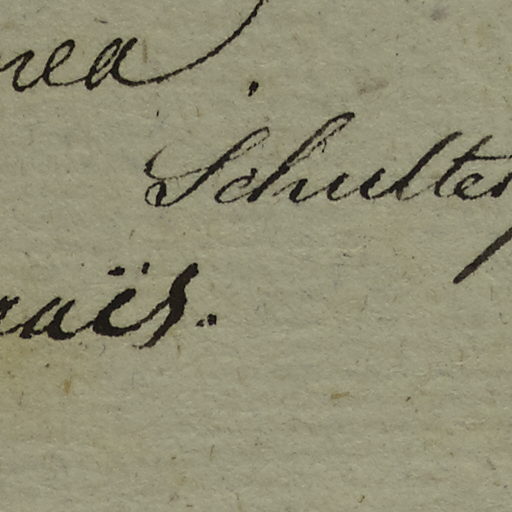 nea.
Schultes
naïs.